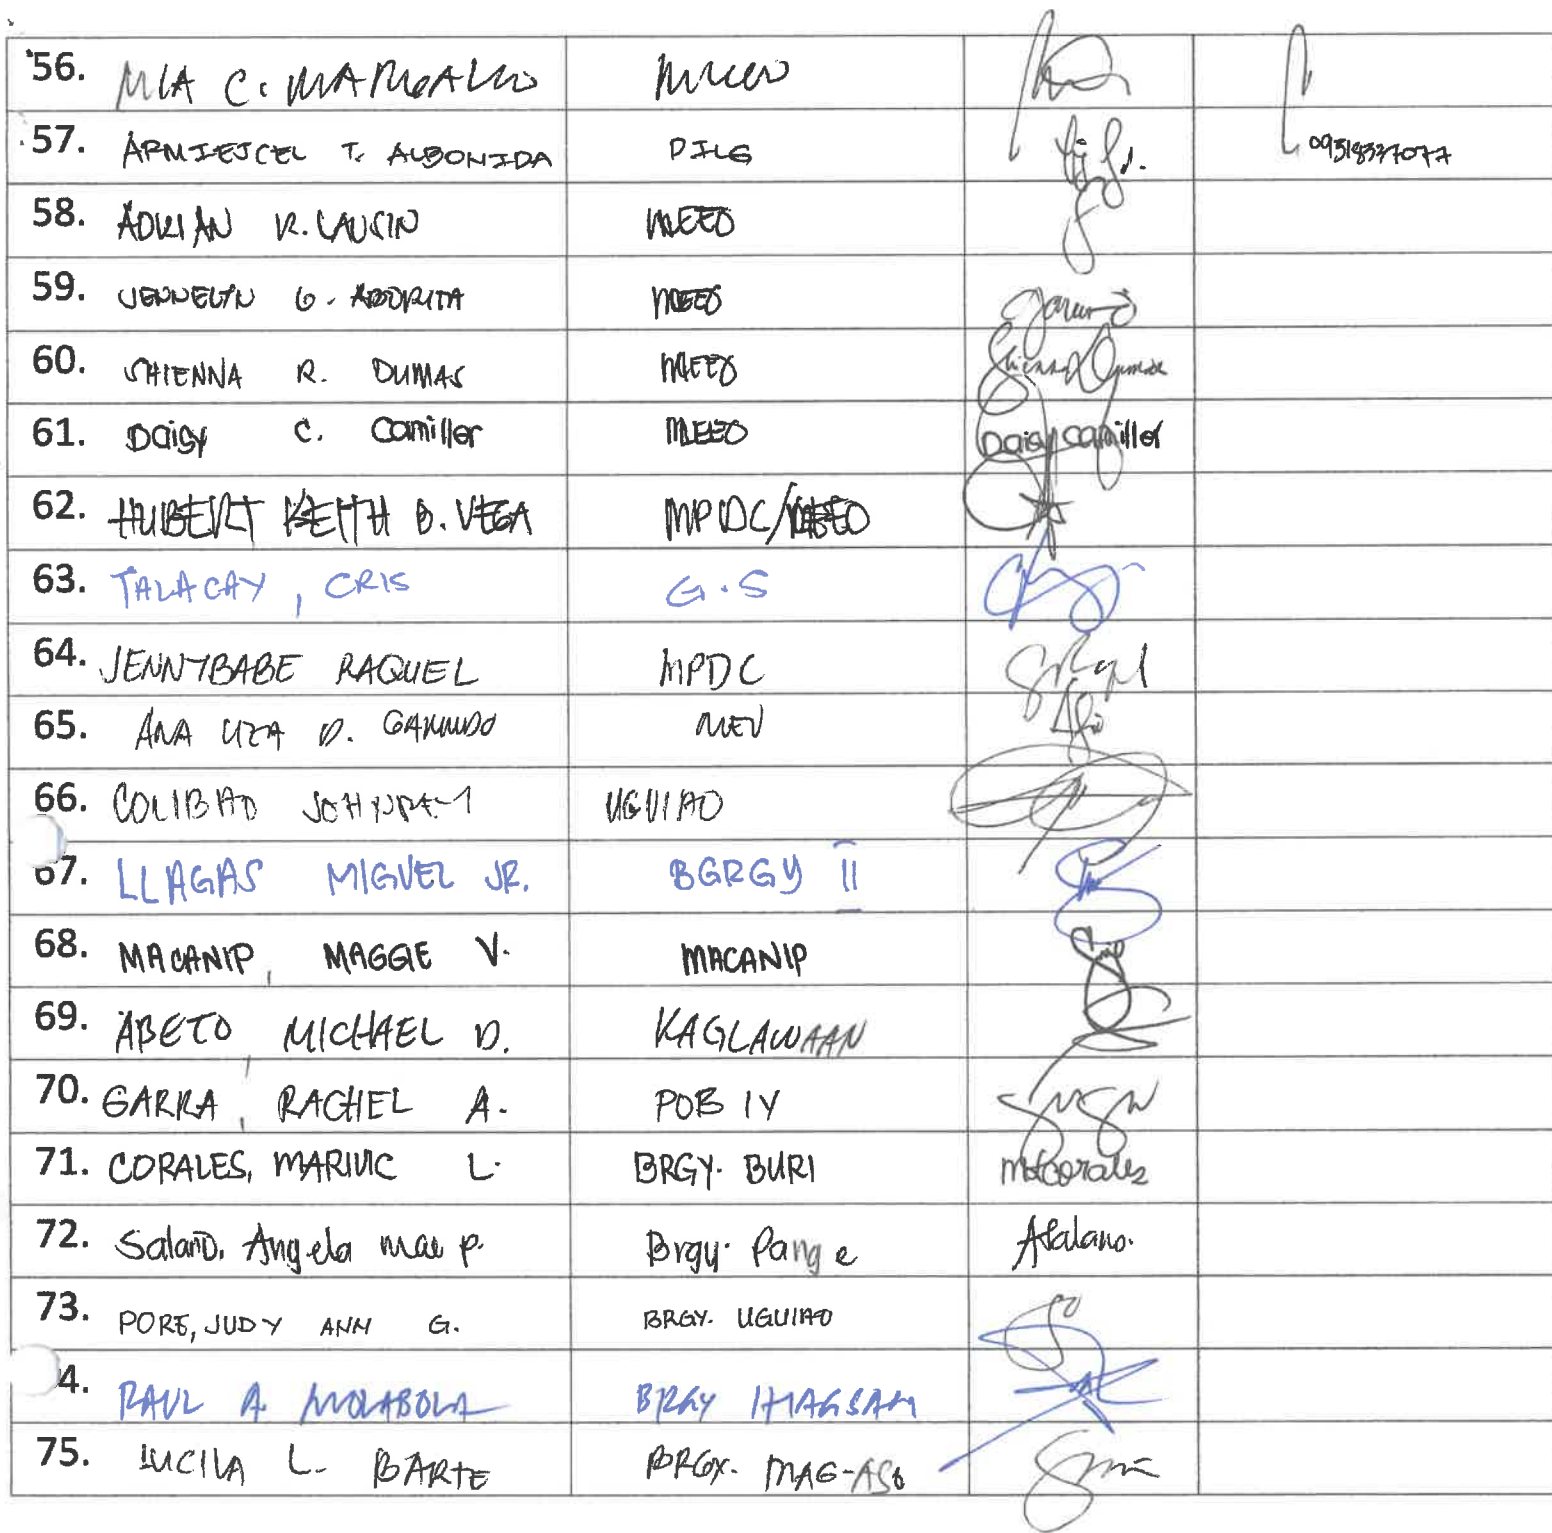 56. MIA C. MARGALLO
57. ARMIEJCEL T. ALBONIDA DILG 09518337077
58. ADRIAN R. LAUSIN MEEO
59. JENNELYN G. ABORITA MEEO
60. SHIENNA R. DUMAS MEEO
61. Daisy C. Camiller MEEO Daisy Camiller
62. HUBERT KEITH B. VEGA MPDC/MEEO
63. TALACAY, CRIS G.S
64. JENNYBABE RAQUEL MPDC
65. ANA LIZA D.
66. COLIBAO UGUIAO
67. LLAGAS MIGUEL JR. BGRGY II
68. MACANIP, MAGGIE V. MACANIP
69. ABETO MICHAEL D. KAGLAWAAN
70. GARRA, RACHEL A. POB IV
71. CORALES, MARIVIC L. BRGY. BURI mlcorales
72. Salano, Angela Mae p. Brgy. Pange ASalano.
73. PORE, JUDY ANN G. BRGY. UGUIAO
4. RAUL A. MOLABOLA BRGY
75. LUCILA L. BARTE BRGY. MAG-ASO